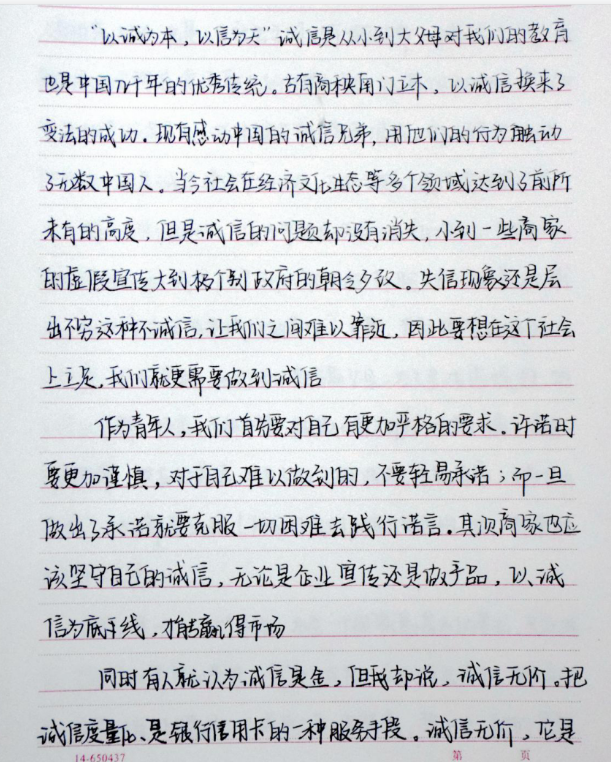 “以诚为本，以信为天”诚信是从小到大父母对我们的教育
也是中国几千年的优秀传统。古有商秧南门立木，以诚信换来了
变法的成功。现有感动中国的诚信兄弟，用他们的行为触动
了无数中国人。当今社会在经济文化生态等多个领域达到了前所
未有的高度，但是诚信的问题却没有消失，小到一些商家
的虚假宣传大到极个别政府的朝令夕改。失信现象还是层
出不穷这种不诚信，让我们之间难以靠近，因此要想在这个社会
上立足，我们就更需要做到诚信
作为青年人，我们首先要对自己有更加严格的要求。许诺时
要更加谨慎，对于自己难以做到的，不要轻易承诺；而一旦
做出了承诺就要克服一切困难去践行诺言。其次商家也应
该坚守自己的诚信，无论是企业宣传还是做产品，以诚
信为底线，才能赢得市场
同时有人就认为诚信是金，但我却说，诚信无价。把
诚信度量化、是银行信用卡的一种服务手段。诚信无价，它是
14-650437 第 页